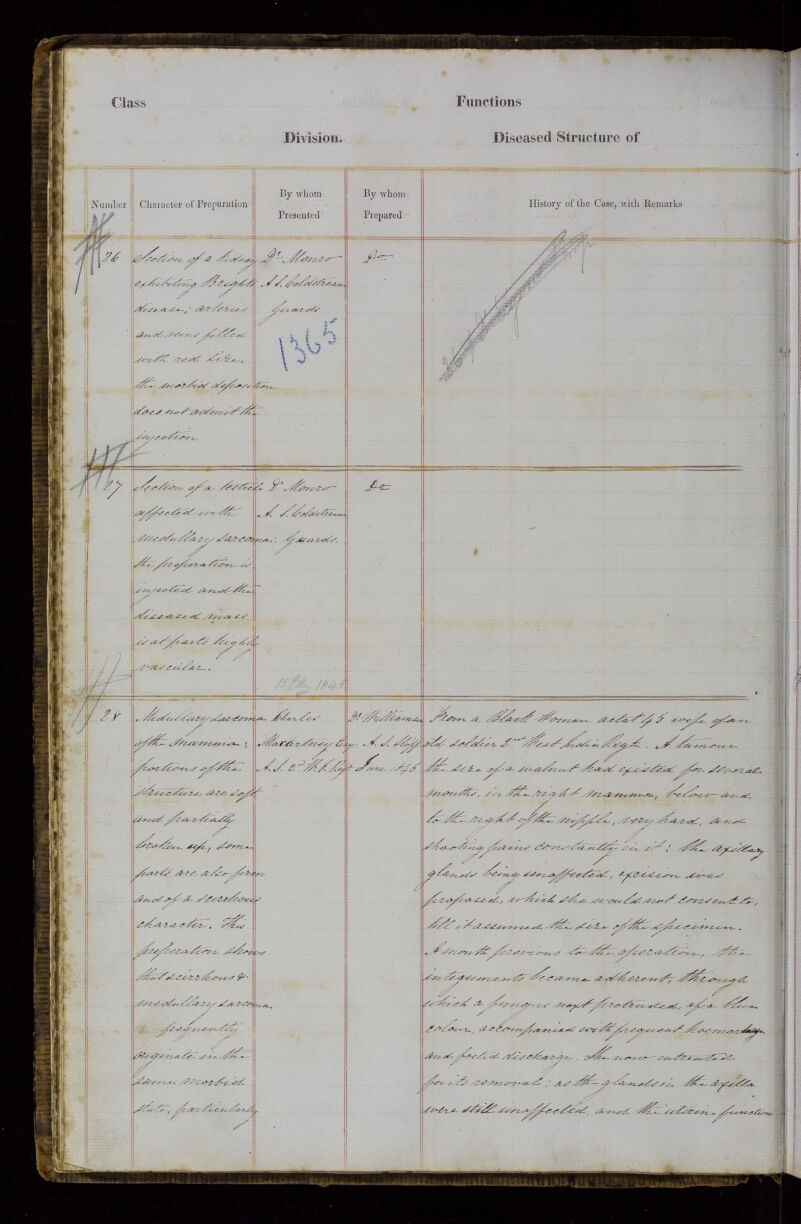 Class
Functions
Division.
Diseased Structure of
Number
Character of Preparation
By whom
Presented
By whom
Prepared
History of the Case, with Remarks
26
Section of a kidney
exhibiting Brights
disease; arteries
and veins filled
with red size,
the morbid deposition
does not admit the
injection
Dr. Monro
A. S. Coldstream
Guards
1365
Do
27
Section of a testicle
affected with
medullary sarcoma:
the preparation is
injected and the
diseased mass
is at parts highly
vascular.
Dr. Monro
A. S. Coldstream
Guards.
1845
Do
28
Medullary sarcoma
of the mamma:
portions of the
structure are soft
and partially
broken up, some
parts are also firm
and of a scirrhous
character. This
preparation shows
that scirrhous &
medullary sarcoma
frequently
originate in the
same morbid
state, particularly
Charles
Macartney Esqr
A. S. 2d W. I. Regt
Dr. Williamson
A. S. Staff
June 1845
From a Black Woman aetat 45 wife of an
old soldier 2nd West India Regt. A tumour
the size of a walnut had existed for several
months, in the right mamma, below and
to the right of the nipple, very hard, and
shooting pains constantly in it: the axillary
glands being unaffected, excision was
proposed, which she would not consent to,
till it assumed the size of the specimen.
A month previous to the operation, the
integuments became adherent, through
which a fungus next protruded, of a blue
colour, accompanied with frequent hoemorhage
and foetid discharge. She now entreated
for its removal: as the glands in the axilla
were still unaffected and the uterine function